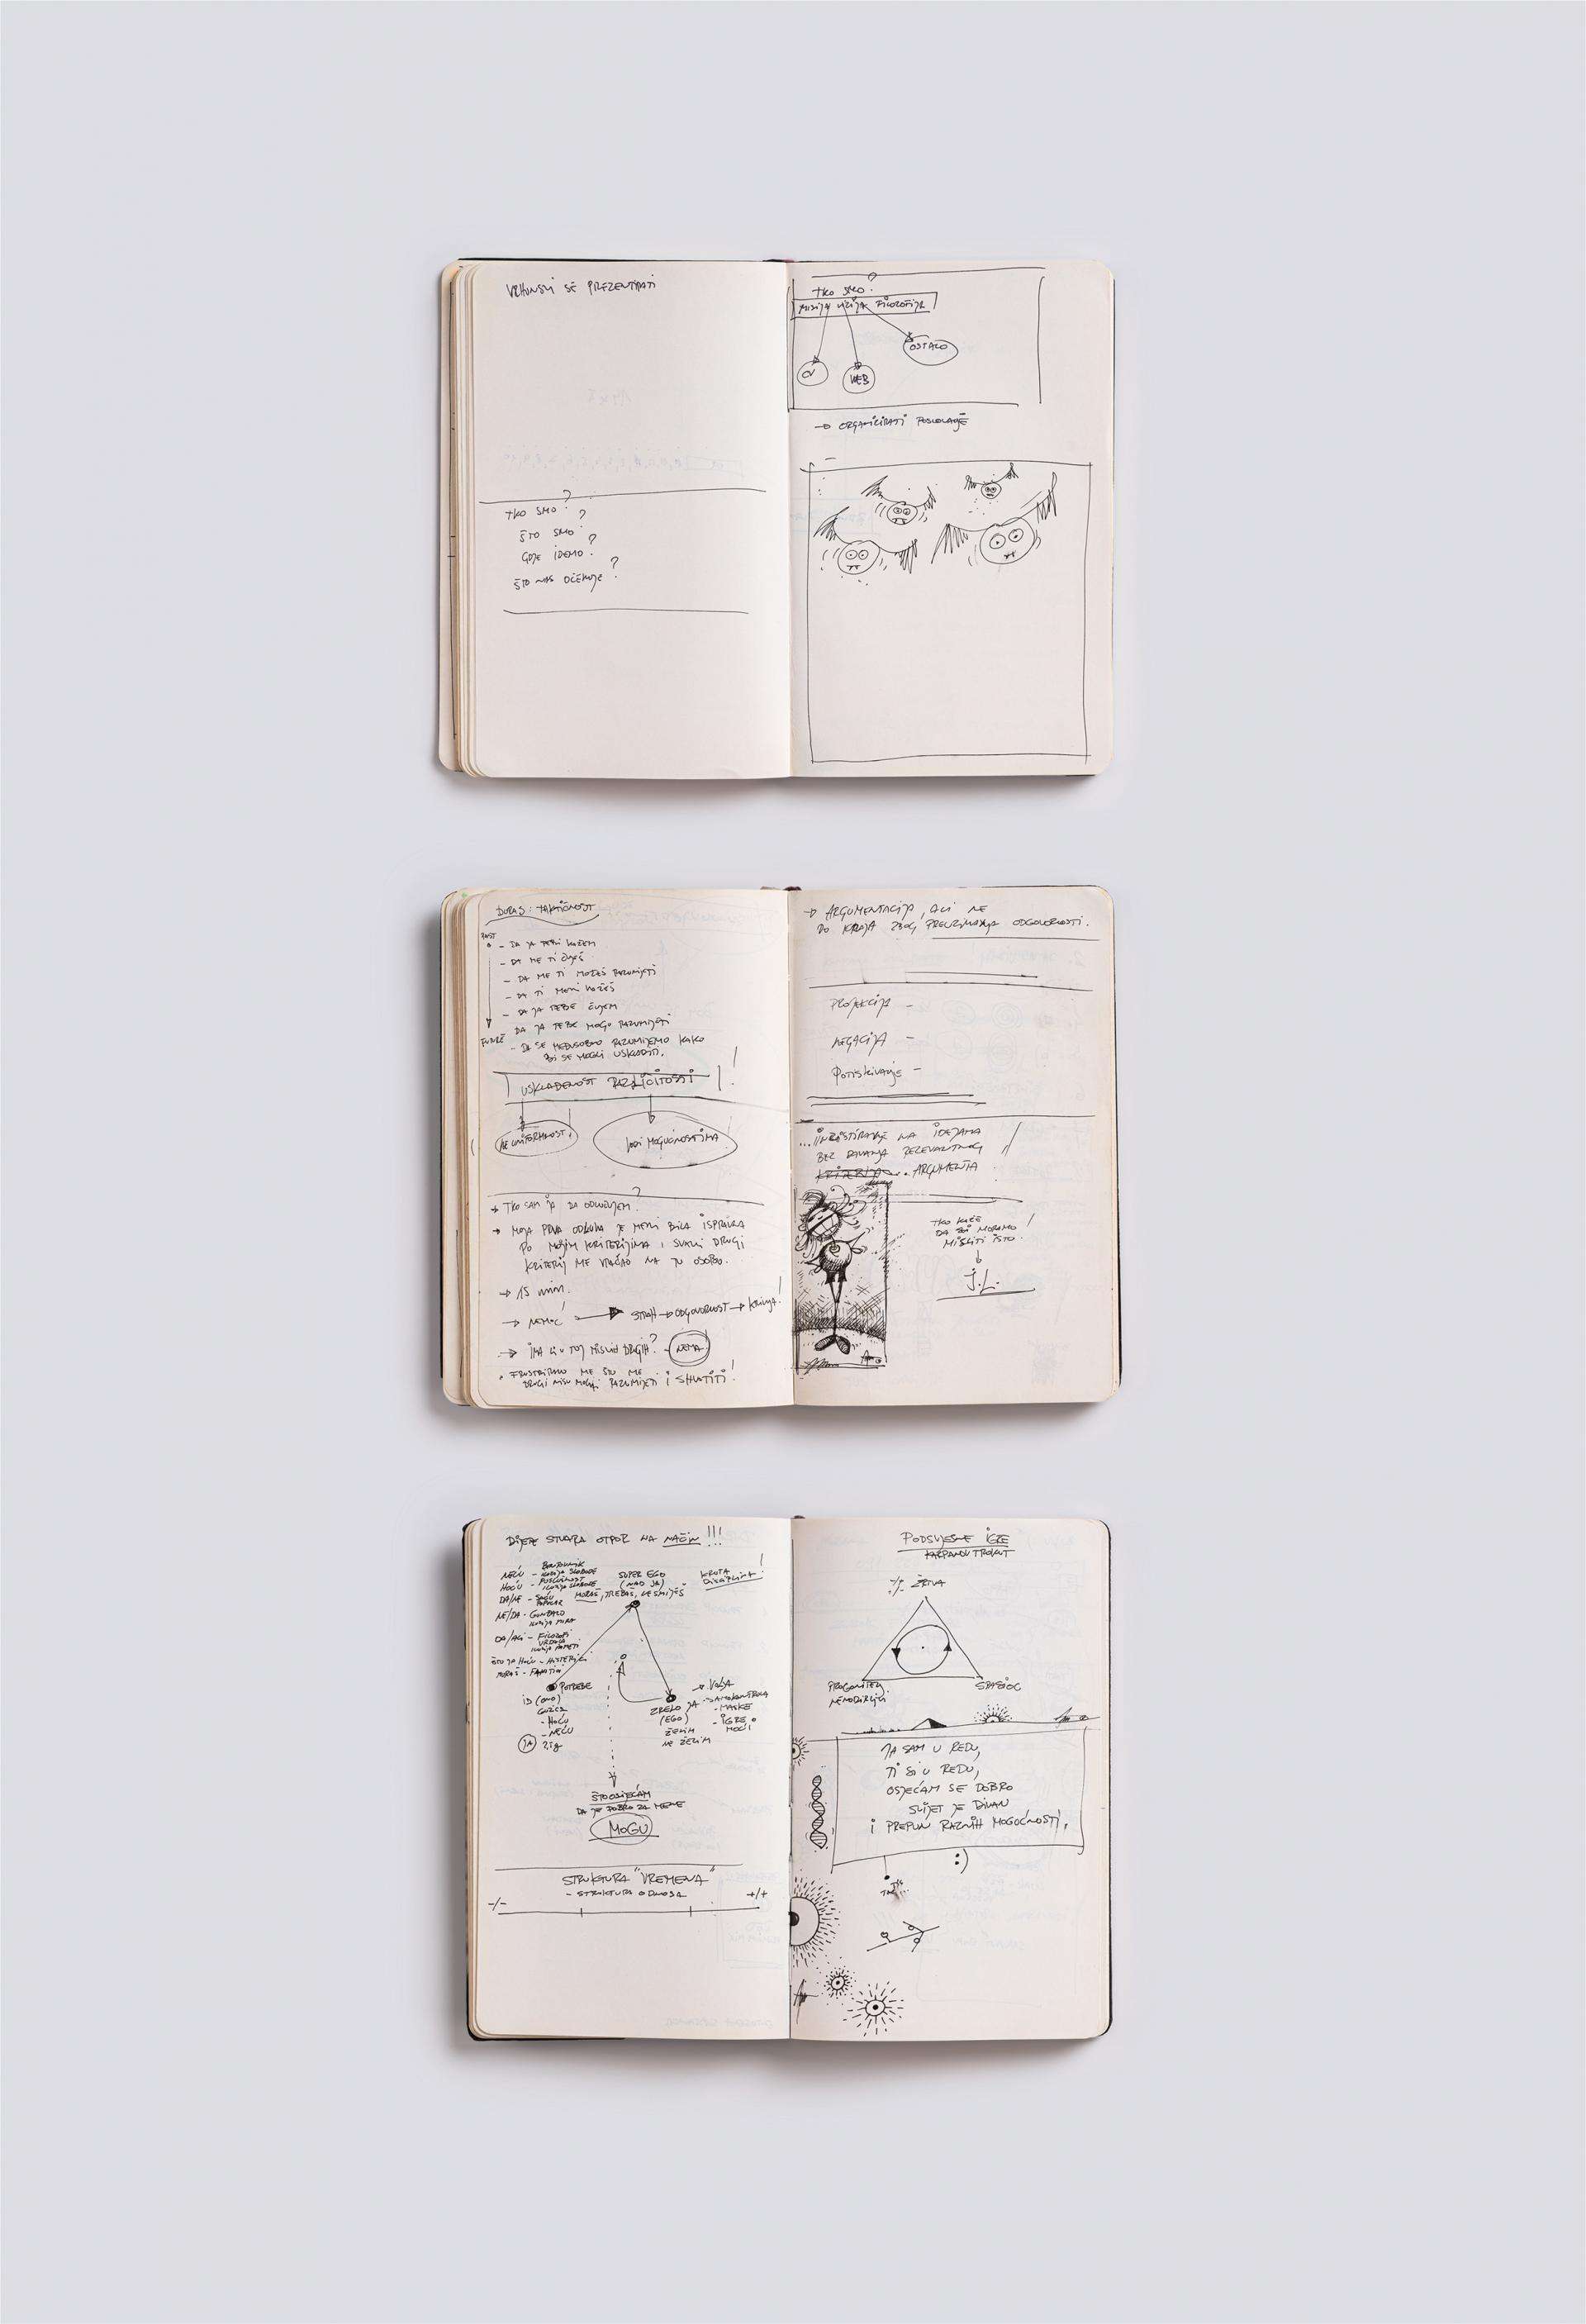 VRHUNSKI SE PREZENTIRATI
TKO SMO?
ŠTO SMO?
GDJE IDEMO?
ŠTO NAS OČEKUJE?
TKO SMO?
MISIJA VIZIJA FILOZOFIJA
CV
WEB
OSTALO
→ ORGANIZIRATI POSLOVANJE
TAKTIČNOST
PAST
- DA JA TEBI KAŽEM
- DA ME TI ČUJEŠ
- DA ME TI MOŽEŠ RAZUMIJETI
- DA TI MENI KAŽEŠ
- DA JA TEBE ČUJEM
DA JA TEBE MOGU RAZUMIJETI
- DA SE MEĐUSOBNO RAZUMIJEMO KAKO
BI SE MOGLI USKLADITI.
USKLAĐENOST RAZLIČITOSTI!
NE UNIFORMNOST!
VODI MOGUĆNOSTIMA
→ TKO SAM JA DA ODLUČUJEM?
→ MOJA PRVA ODLUKA JE MENI BILA ISPRAVNA
PO MOJIM KRITERIJIMA I SVAKI DRUGI
KRITERIJ ME VRAĆAO NA TU OSOBU.
→ 15 min.
→ NEMOĆ! → STRAH → ODGOVORNOST → KRIVNJA!
→ IMA LI U TOJ MISLI DRUGIH? - NEMA
• FRUSTRIRALO ME ŠTO ME
DRUGI NISU MOGLI RAZUMIJETI I SHVATITI!
→ ARGUMENTACIJA, ALI NE
DO KRAJA ZBOG PREUZIMANJA ODGOVORNOSTI.
PROJEKCIJA -
NEGACIJA -
POTISKIVANJE -
...INZISTIRANJE NA IDEJAMA
BEZ DAVANJA RELEVANTNOG
KRITERIJA. ARGUMENTA
TKO KAŽE
DA SVI MORAMO
MISLITI ISTO!
J.L.
DIJETE STVARA OTPOR NA NAČIN!!!
NEĆU - BUNTOVNIK
ILUZIJA SLOBODE
HOĆU - POSLUŠNOST
ILUZIJA SLOBODE
DA/NE -
NE/DA - GUNĐALO
ILUZIJA MIRA
DA/ALI - FILOZOFI
ILUZIJA PAMETI
ŠTO JA HOĆU - HISTERICI
MORAŠ - FANATICI
SUPER EGO
(NAD JA)
MORAŠ, TREBAŠ, NE SMIJEŠ
KRUTA
DISCIPLINA!
POTREBE
ID (ONO)
- HOĆU
- NEĆU
JA
ZRELO JA
(EGO)
ŽELIM
NE ŽELIM
→ VOLJA
- SAMOKONTROLA
- MASKE
- IGRE
MOĆI
ŠTO OSJEĆAM
DA JE DOBRO ZA MENE
MOGU
STRUKTURA "VREMENA"
- STRUKTURA ODNOSA
-/-
+/+
PODSVJESNE IGRE
KARPANOV TROKUT
-/- ŽRTVA
PROGONITELJ
SPASIOC
JA SAM U REDU,
TI SI U REDU,
OSJEĆAM SE DOBRO
SVIJET JE DIVAN
I PREPUN RAZNIH MOGUĆNOSTI,
:)